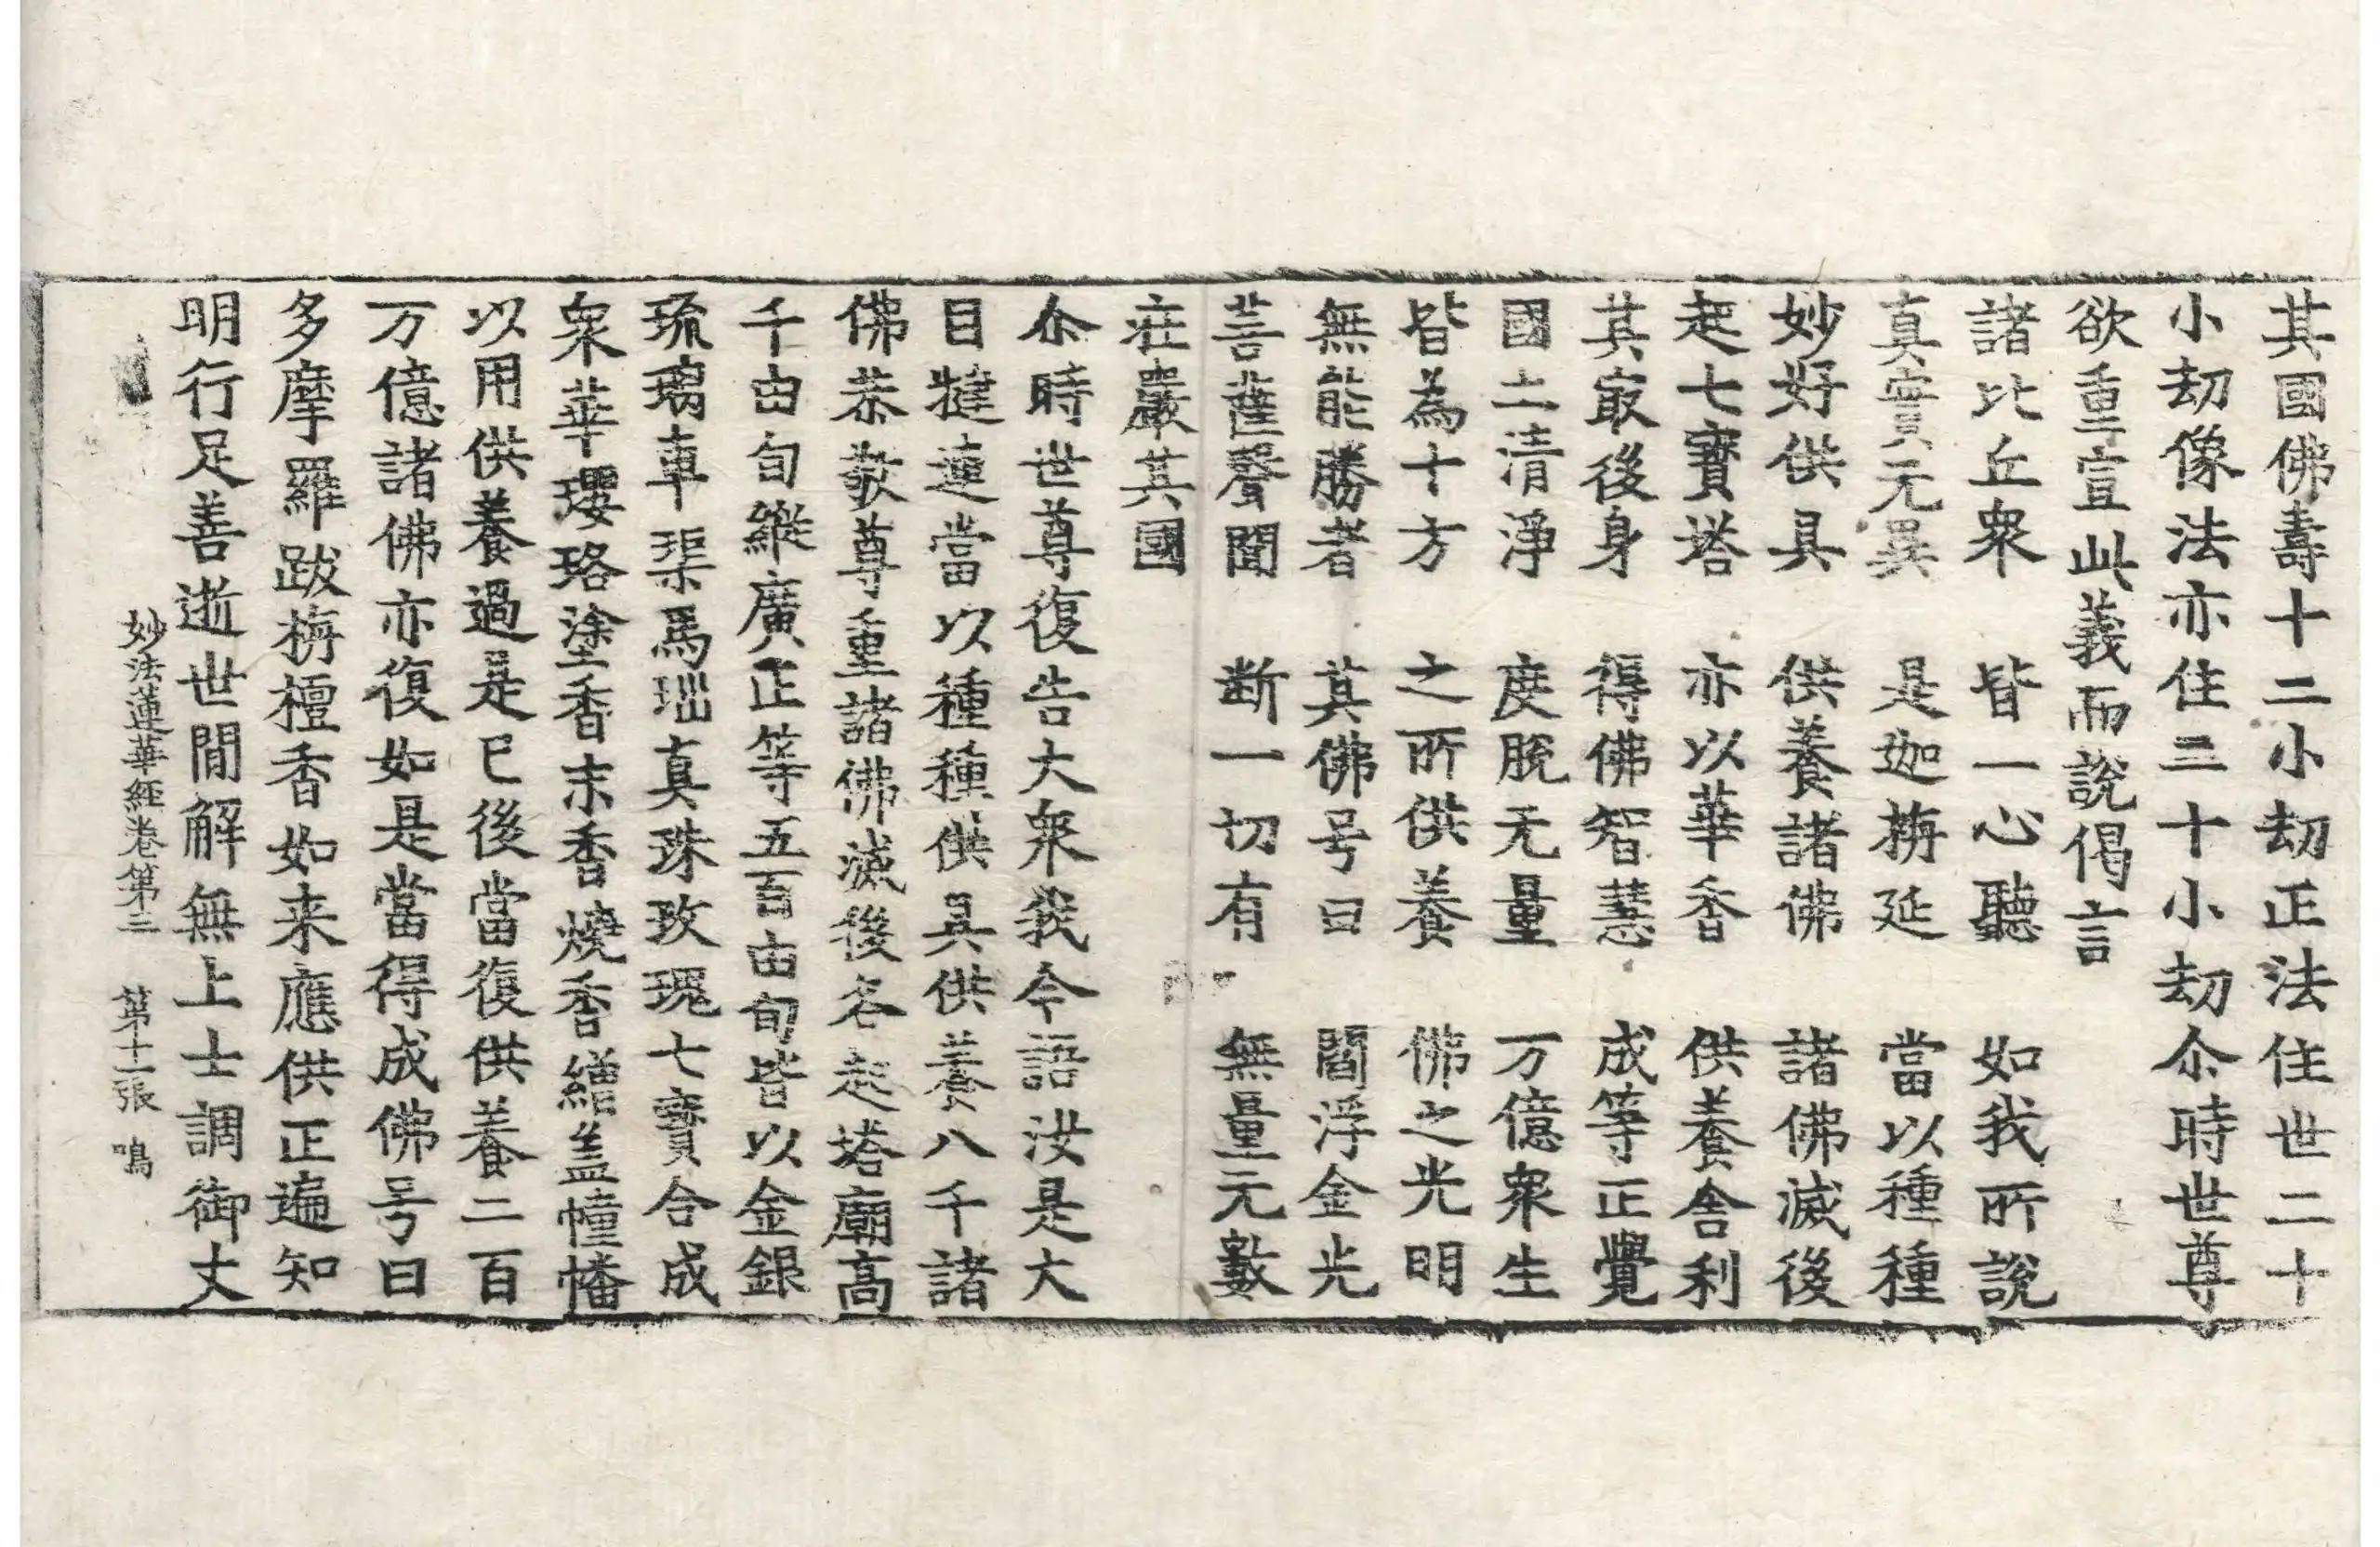 其國佛壽十二小劫正法住世二十
小劫像法亦住二十小劫尒時世尊
欲重宣此義而說偈言
諸比丘衆 皆一心聽 如我所說
真實无異 是迦栴延 當以種種
妙好供具 供養諸佛 諸佛滅後
起七寶塔 亦以華香 供養舍利
其㝡後身 得佛智慧 成等正覺
國土清淨 度脫无量 万億衆生
皆為十方 之所供養 佛之光明
無能勝者 其佛号曰 閻浮金光
菩薩聲聞 断一切有 無量元數
莊嚴其國
尒時世尊復告大衆我今語汝是大
目揵連當以種種供具供養八千諸
佛恭敬尊重諸佛滅後各起塔廟高
千由旬縱廣正等五百由旬皆以金銀
琉璃車𤦲馬瑙真珠玫瑰七寶合成
衆華瓔珞塗香末香燒香繒盖幢幡
以用供養過是已後當復供養二百
万億諸佛亦復如是當得成佛号曰
多摩羅跋栴檀香如来應供正遍知
明行足善逝世間解無上士調御丈
妙法蓮華經卷第三 第十一張 鳴